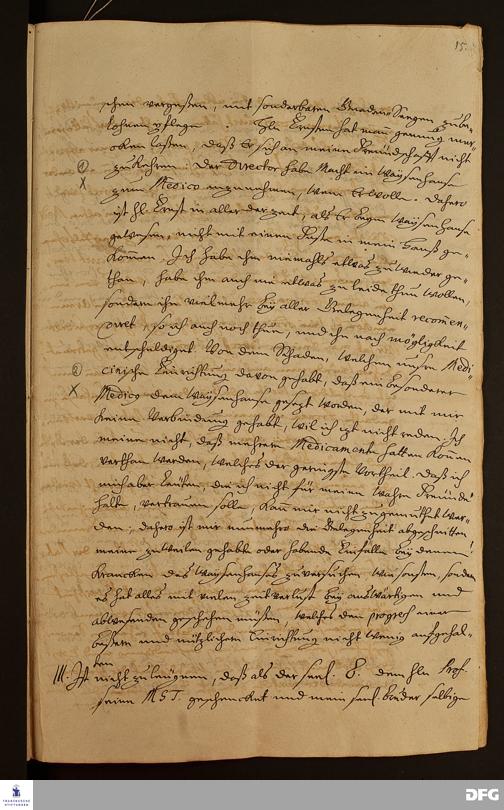 15.
schon vergeßen, mit sonderbaren Gnaden-Seegen zube-
lohnen pflege. Hln Ernsten hat man genung mer-
cken laßen, daß Er sich an meine Freündschafft nicht
zukehren: der Director habe Macht im Waysenhause
zum Medico anzunehmen, wem Er wolle. Dahero
ist Hl. Ernst in aller der zeit, als Er beym Waysenhause
gewesen, nicht mit einem Fuße in mein Hauß ge-
kommen. Ich habe ihm niemahls etwas zu wieder ge-
than, habe ihm auch nie etwas zu leide thun wollen,
sondern ihn vielmehr bey aller Gelegenheit recommen-
diret, so ich auch noch thue, und ihn nach mögligkeit
entschuldiget. Von dem Schaden, welchen unsre Medi-
cinische Einrichtung davon gehabt, daß ein besonderer
Medicus dem Waysenhause gesezt worden, der mit mir
keine Verbindung gehabt, wil ich izt nicht reden. Ich
meine nicht, daß mehrere Medicamente hätten können
verthan werden, welches der geringste Vortheil. Daß ich
mich aber Leüten, die ich nicht für meine wahre Freünde
halte, vertrauen solle, kan mir nicht zugemuthet wer-
den; dahero ist mir nunmehro die Gelegenheit abgeschnitten,
meine zuweilen gehabte oder habende Einfälle bey denen
Krancken des Waysenhauses zuversuchen wie sonsten, sondern
es hat alles mit vielen zeitverlust bey auswärtigen und
abwesenden geschehen müßen, welches den progress einer
beßern und nüzlichern Einrichtung nicht wenig aufgehal-
ten
III. Ist nicht zuläugnen, daß als der seel. dem Hln Prof.
seine MST. geschencket und mein seel. Bruder selbige
1)
X
2)
X
FRANCKESCHE
STIFTUNGEN
DFG